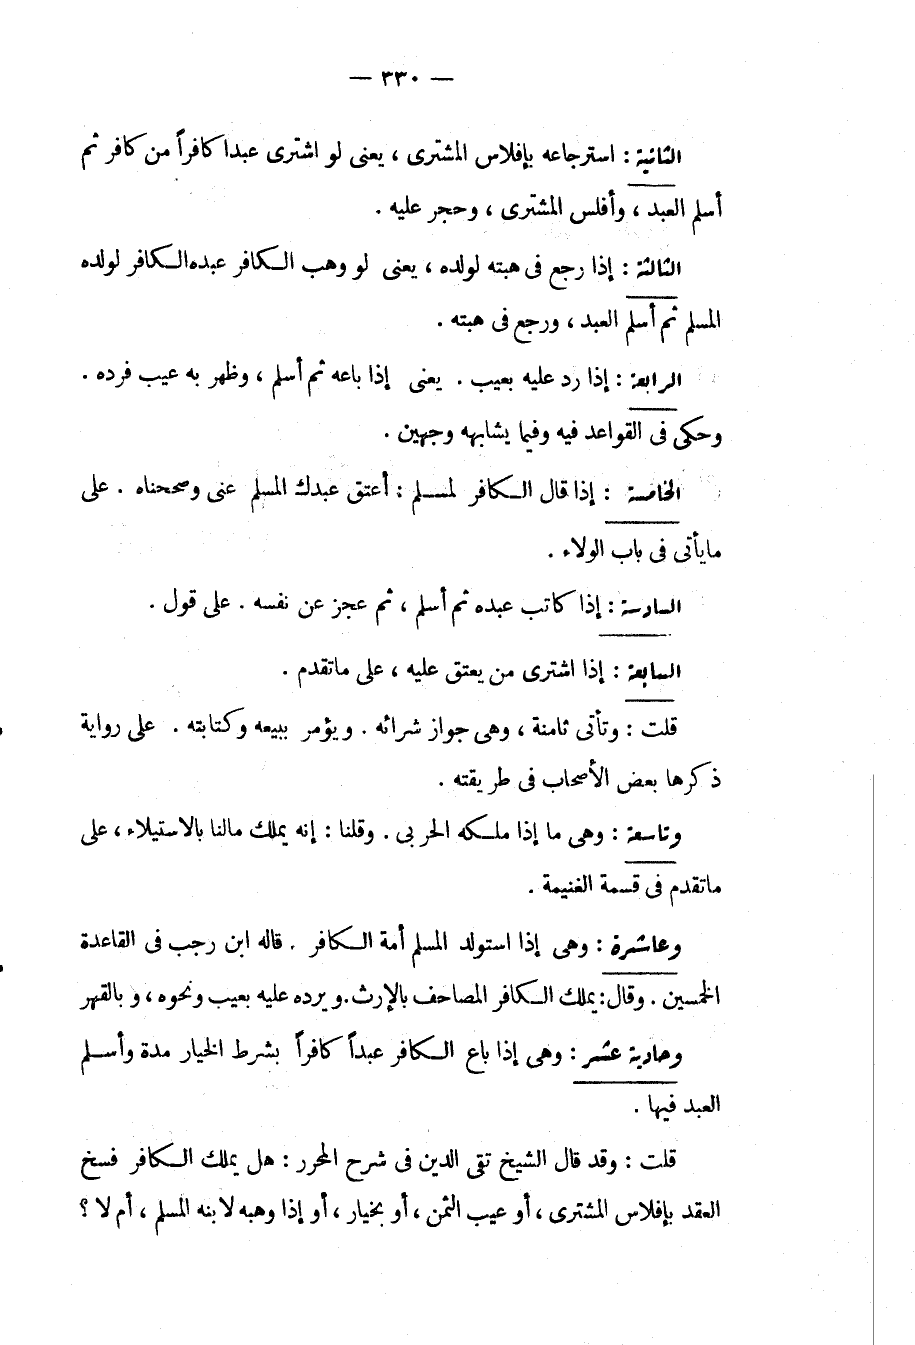 — ٣٣٠ —
الثانية : استرجاعه بإفلاس المشترى ، يعنى لو اشترى عبدا كافراً من كافر ثم
أسلم العبد ، وأفلس المشترى ، وحجر عليه .
الثالثة : إذا رجع فى هبته لولده ، يعنى لو وهب الكافر عبده الكافر لولده
المسلم ثم أسلم العبد ، ورجع فى هبته .
الرابعة : إذا رد عليه بعيب . يعنى إذا باعه ثم أسلم ، وظهر به عيب فرده .
وحكى فى القواعد فيه وفيما يشابهه وجهين .
الخامسة : إذا قال الكافر لمسلم : أعتق عبدك المسلم عنى وصححناه . على
مايأتى فى باب الولاء .
السادسة : إذا كاتب عبده ثم أسلم ، ثم عجز عن نفسه . على قول .
السابعة : إذا اشترى من يعتق عليه ، على ماتقدم .
قلت : وتأتى ثامنة ، وهى جواز شرائه . ويؤمر ببيعه وكتابته . على رواية
ذكرها بعض الأصحاب فى طريقته .
وتاسعة : وهى ما إذا ملكه الحربى . وقلنا : إنه يملك مالنا بالاستيلاء ، على
ماتقدم فى قسمة الغنيمة .
وعاشرة : وهى إذا استولد المسلم أمة الكافر . قاله ابن رجب فى القاعدة
الخمسين . وقال : يملك الكافر المصاحف بالإرث . ويرده عليه بعيب ونحوه ، وبالقهر
وحادية عشر : وهى إذا باع الكافر عبداً كافراً بشرط الخيار مدة وأسلم
العبد فيها .
قلت : وقد قال الشيخ تقى الدين فى شرح المحرر : هل يملك الكافر فسخ
العقد بإفلاس المشترى ، أو عيب الثمن ، أو بخيار ، أو إذا وهبه لابنه المسلم ، أم لا ؟